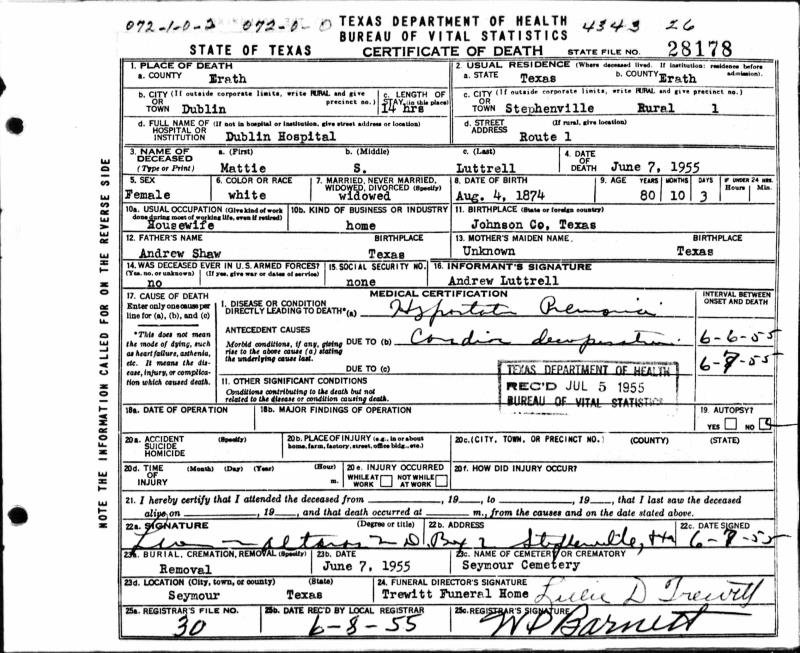 072-1-0-2 072-0-0 TEXAS DEPARTMENT OF HEALTH 4343 26
BUREAU OF VITAL STATISTICS
STATE OF TEXAS CERTIFICATE OF DEATH STATE FILE NO. 28178
1. PLACE OF DEATH
a. COUNTY Erath
2. USUAL RESIDENCE (Where deceased lived. If institution: residence before admission).
a. STATE Texas b. COUNTY Erath
b. CITY (If outside corporate limits, write RURAL and give precinct no.)
OR TOWN Dublin
c. LENGTH OF STAY (in this place) 14 hrs
c. CITY (If outside corporate limits, write RURAL and give precinct no.)
OR TOWN Stephenville Rural 1
d. FULL NAME OF (If not in hospital or institution, give street address or location)
HOSPITAL OR INSTITUTION Dublin Hospital
d. STREET ADDRESS (If rural, give location)
Route 1
3. NAME OF DECEASED (Type or Print)
a. (First) b. (Middle) c. (Last)
Mattie S. Luttrell
4. DATE OF DEATH June 7, 1955
5. SEX
Female
6. COLOR OR RACE
white
7. MARRIED, NEVER MARRIED, WIDOWED, DIVORCED (Specify)
widowed
8. DATE OF BIRTH
Aug. 4, 1874
9. AGE YEARS MONTHS DAYS IF UNDER 24 HRS. Hours Min.
80 10 3
10a. USUAL OCCUPATION (Give kind of work done during most of working life, even if retired)
Housewife
10b. KIND OF BUSINESS OR INDUSTRY
home
11. BIRTHPLACE (State or foreign country)
Johnson Co, Texas
12. FATHER'S NAME BIRTHPLACE
Andrew Shaw Texas
13. MOTHER'S MAIDEN NAME. BIRTHPLACE
Unknown Texas
14. WAS DECEASED EVER IN U.S. ARMED FORCES?
(Yes, no, or unknown) (If yes, give war or dates of service)
no
15. SOCIAL SECURITY NO.
none
16. INFORMANT'S SIGNATURE
Andrew Luttrell
17. CAUSE OF DEATH
Enter only one cause per line for (a), (b), and (c)
*This does not mean the mode of dying, such as heart failure, asthenia, etc. It means the disease, injury, or complication which caused death.
MEDICAL CERTIFICATION
INTERVAL BETWEEN ONSET AND DEATH
I. DISEASE OR CONDITION DIRECTLY LEADING TO DEATH* (a)
ANTECEDENT CAUSES
Morbid conditions, if any, giving rise to the above cause (a) stating the underlying cause last.
DUE TO (b) 6-6-55
6-7-55
DUE TO (c)
TEXAS DEPARTMENT OF HEALTH
REC'D JUL 5 1955
BUREAU OF VITAL STATISTICS
11. OTHER SIGNIFICANT CONDITIONS
Conditions contributing to the death but not related to the disease or condition causing death.
18a. DATE OF OPERATION
18b. MAJOR FINDINGS OF OPERATION
19. AUTOPSY?
YES NO
20a. ACCIDENT SUICIDE HOMICIDE (Specify)
20b. PLACE OF INJURY (e.g., in or about home, farm, factory, street, office bldg., etc.)
20c. (CITY, TOWN, OR PRECINCT NO.) (COUNTY) (STATE)
20d. TIME OF INJURY (Month) (Day) (Year) (Hour) m.
20e. INJURY OCCURRED
WHILE AT WORK NOT WHILE AT WORK
20f. HOW DID INJURY OCCUR?
21. I hereby certify that I attended the deceased from , 19 , to , 19 , that I last saw the deceased
alive on , 19 , and that death occurred at m., from the causes and on the date stated above.
22a. SIGNATURE (Degree or title)
22b. ADDRESS
Box 2 Stephenville,
22c. DATE SIGNED
6-7-55
23a. BURIAL, CREMATION, REMOVAL (Specify)
Removal
23b. DATE
June 7, 1955
23c. NAME OF CEMETERY OR CREMATORY
Seymour Cemetery
23d. LOCATION (City, town, or county) (State)
Seymour Texas
24. FUNERAL DIRECTOR'S SIGNATURE
Trewitt Funeral Home Lucie D Trewitt
25a. REGISTRAR'S FILE NO.
30
25b. DATE REC'D BY LOCAL REGISTRAR
6-8-55
25c. REGISTRAR'S SIGNATURE
W D Barnett
NOTE THE INFORMATION CALLED FOR ON THE REVERSE SIDE